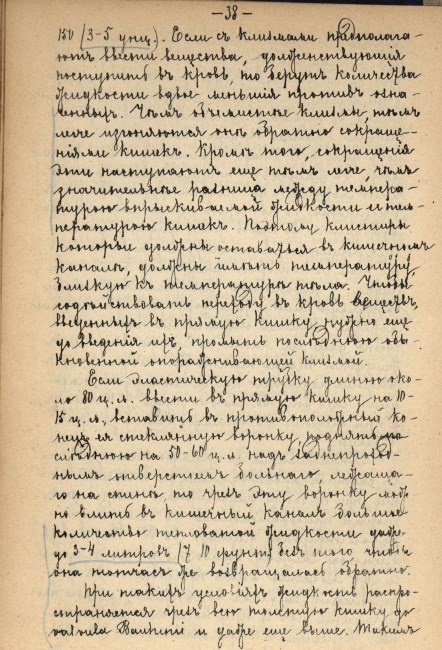 —38—
150 (3-5 унц.). Если съ клизмами предполага-
ютъ ввести вещества, долженствующія
поступить въ кровь, то берутъ количества
жидкости вдвое меньшія противъ озна-
ченныхъ. Чѣмъ объемистѣе клизмы, тѣмъ
легче изгоняются онѣ обратно сокраще-
ніями кишекъ. Кромѣ того, сокращенія
эти наступаютъ еще тѣмъ легче, чѣмъ
значительнѣе разница между темпера-
турою впрыскиваемой жидкости и тем-
пературою кишекъ. Поэтому клистиры
которые должны оставаться въ кишечномъ
каналѣ, должны имѣть температуру,
близкую къ температурѣ тѣла. Чтобы
содѣйствовать переходу въ кровь веществъ,
введенныхъ въ прямую кишку, нужно еще
до введенія ихъ, промыть послѣднюю обы-
кновенной опоражнивающей клизмой.
Если эластическую трубку длиною око-
ло 80 ц.м. ввести въ прямую кишку на 10-
15 ц.м., вставить въ противоположный ко-
нецъ ея стеклянную воронку, поднять по
слѣднюю на 50-60 ц.м. надъ заднепроход-
нымъ отверстіемъ больнаго, лежаща-
го на спинѣ, то чрезъ эту воронку мож-
но влить въ кишечный каналъ большое
количество тепловатой жидкости даже
до 3-4 литровъ (7 10 фунт.) безъ того чтобы
она тотчасъ же возвращалась обратно.
При такихъ условіяхъ жидкость распро-
страняется чрезъ всю толстую кишку до
valvula Bauhinii и даже еще выше. Такимъ